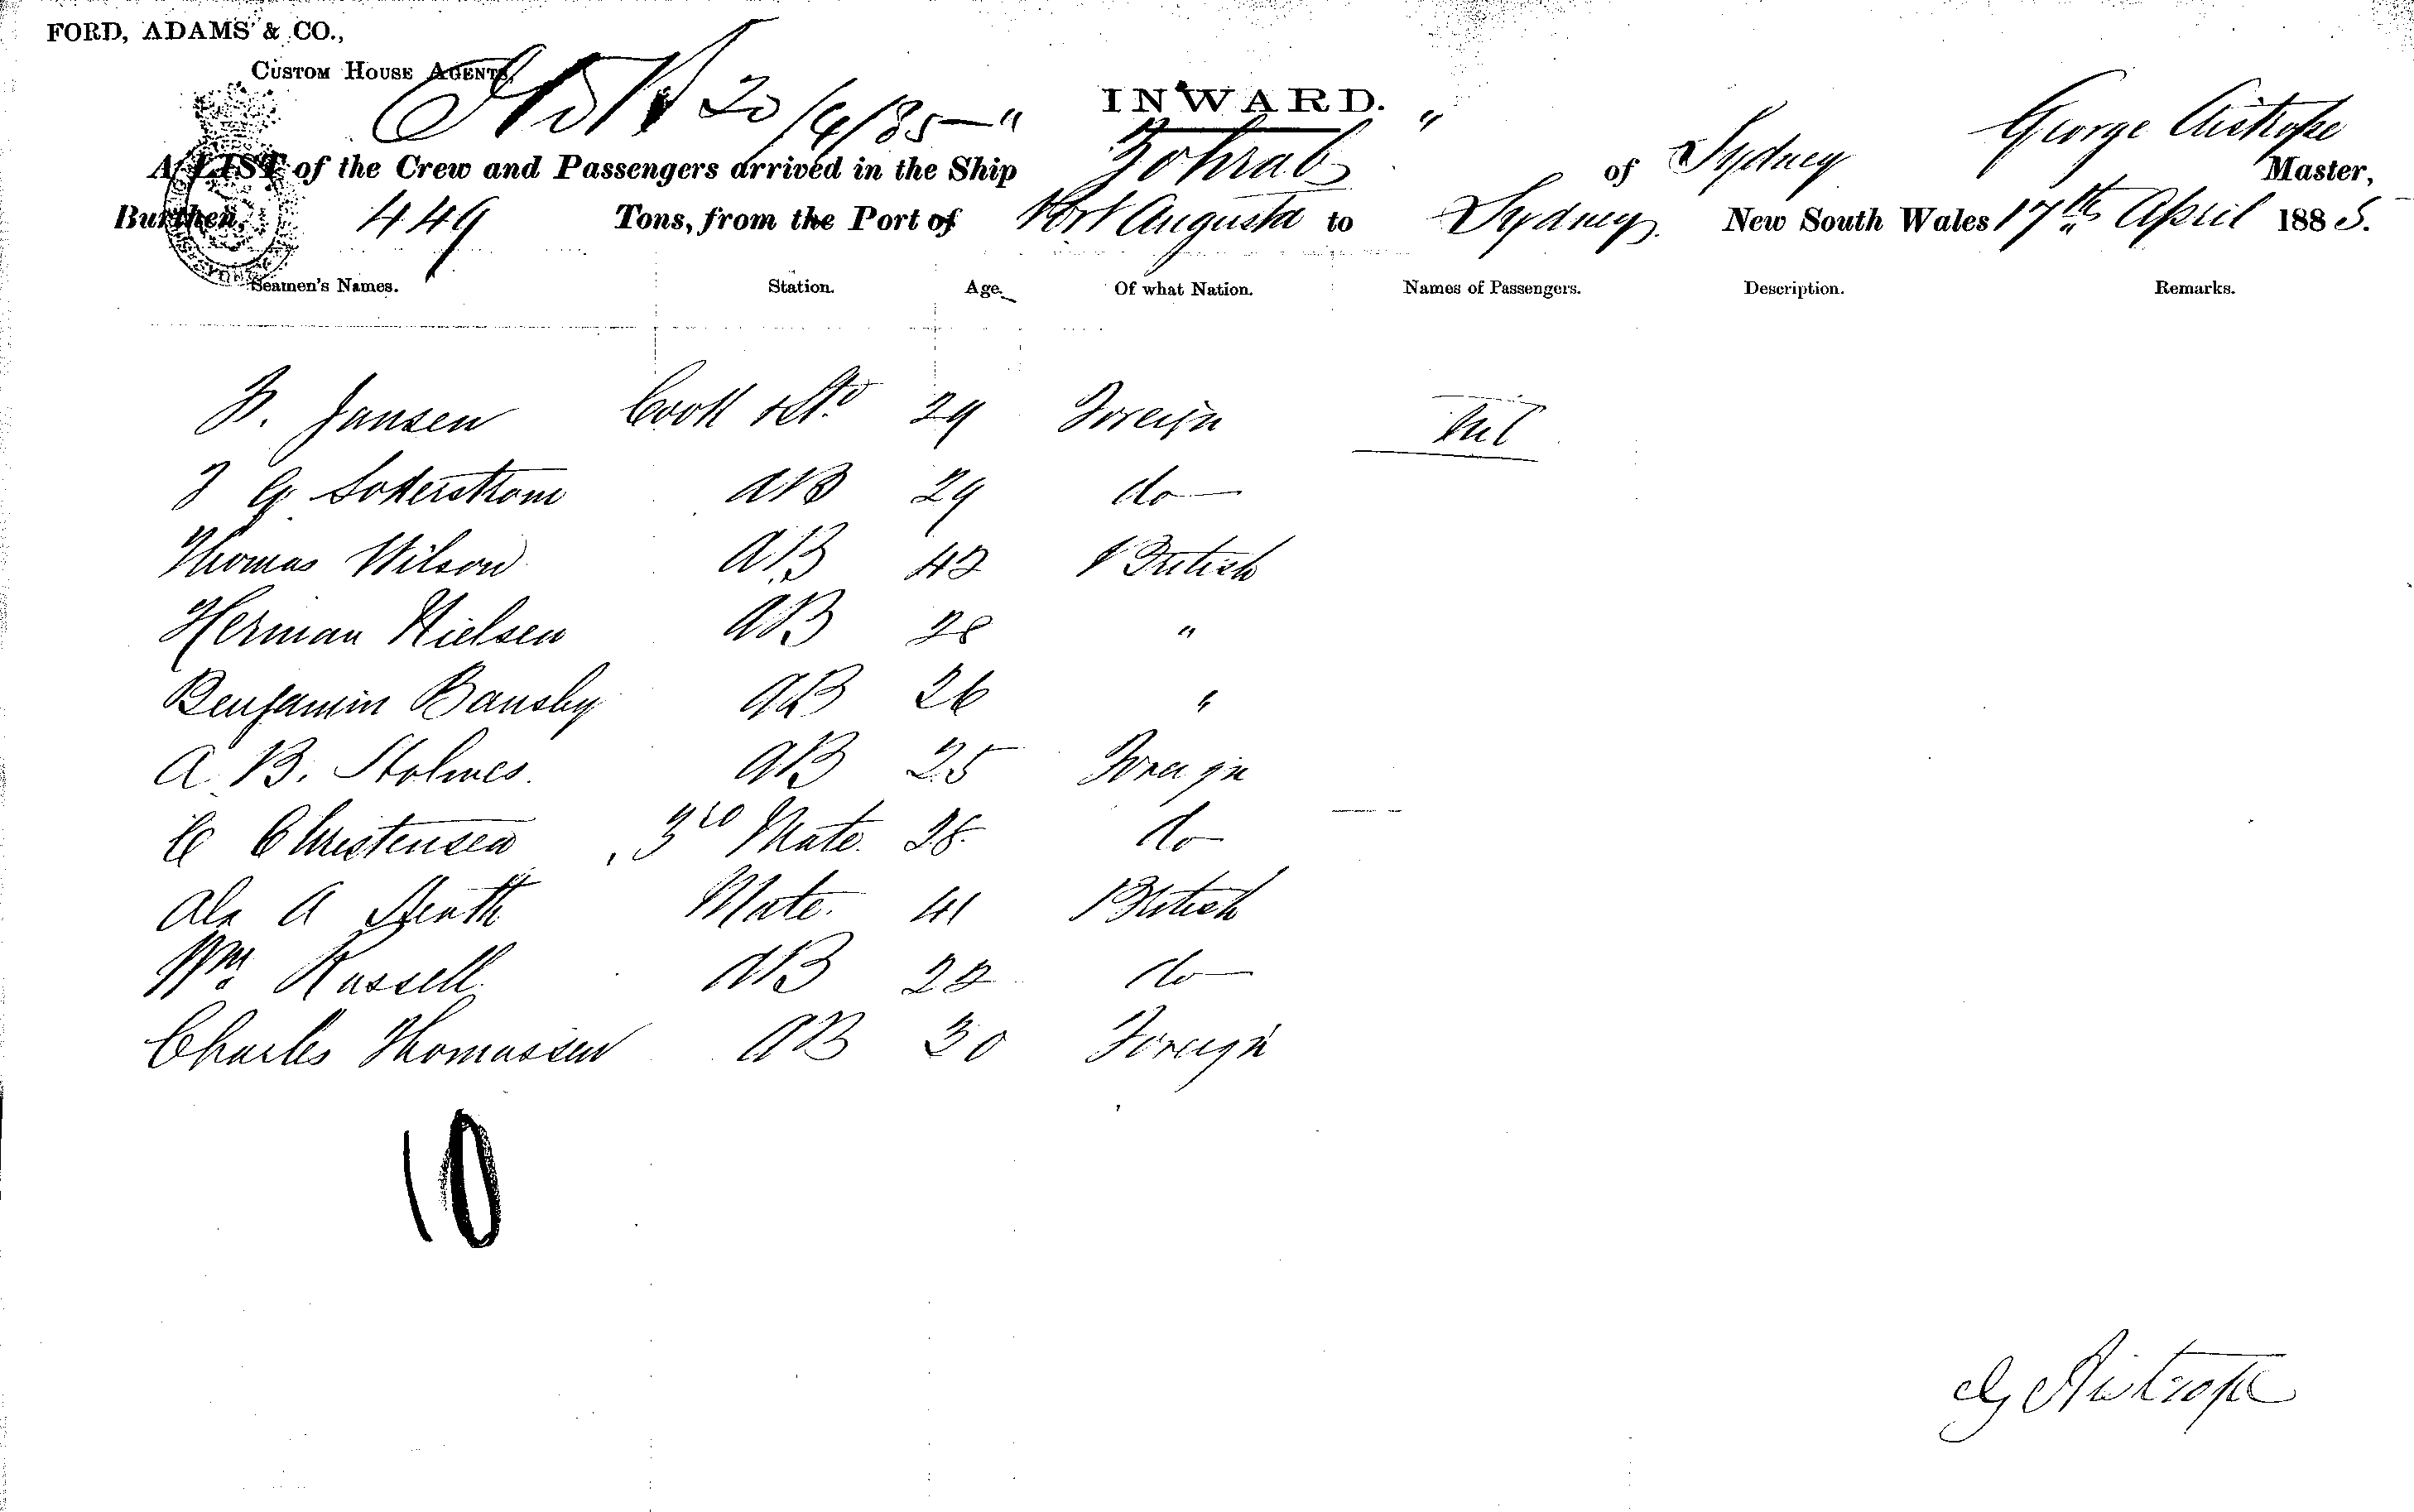 FORD, ADAMS & CO.,
CUSTOM HOUSE AGENTS,
20/4/85
INWARD.
George Aistrope
A LIST of the Crew and Passengers arrived in the Ship " Zohrab " of Sydney Master,
Burthen, 449 Tons, from the Port of Port Augusta to Sydney New South Wales 17th April 1885.
Seamen's Names. Station. Age. Of what Nation. Names of Passengers. Description. Remarks.
Jansen Cook & Std 29 Foreign Nil
G. Soderstrom AB 29 do
Thomas Wilson AB 42 British
Herman Nielsen AB 28 "
Benjamin Bansby AB 26 "
A. B. Holmes. AB 25 Foreign
C Christensen Mate. 28 do
A Mate. 41 British
Wm Russell AB 22 do
Charles Thomassen AB 30 Foreign
10
G Aistrope